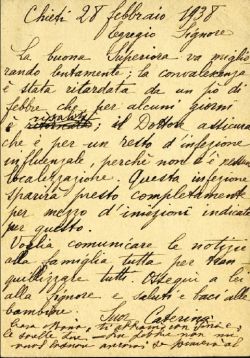 Chieti 28 febbraio 1938
Egregio Signore
La buona Superiora va miglio
rando lentamente; la convalescenza
è stata ritardata da un po' di
febbre che per alcuni giorni
è risalita; il Dottore assicura
che è per un resto d'infezione
influenzale, perché non vi è
localizzazione. Questa infezione
sparirà presto completamente
per mezzo d'iniezioni indicate
per questo.
Voglia comunicare le notizie
alla famiglia tutta per tran
quillizzare tutti. Ossequi a lei
alla signora e saluti e baci alle
bambine.
Suor Caterina
Cara